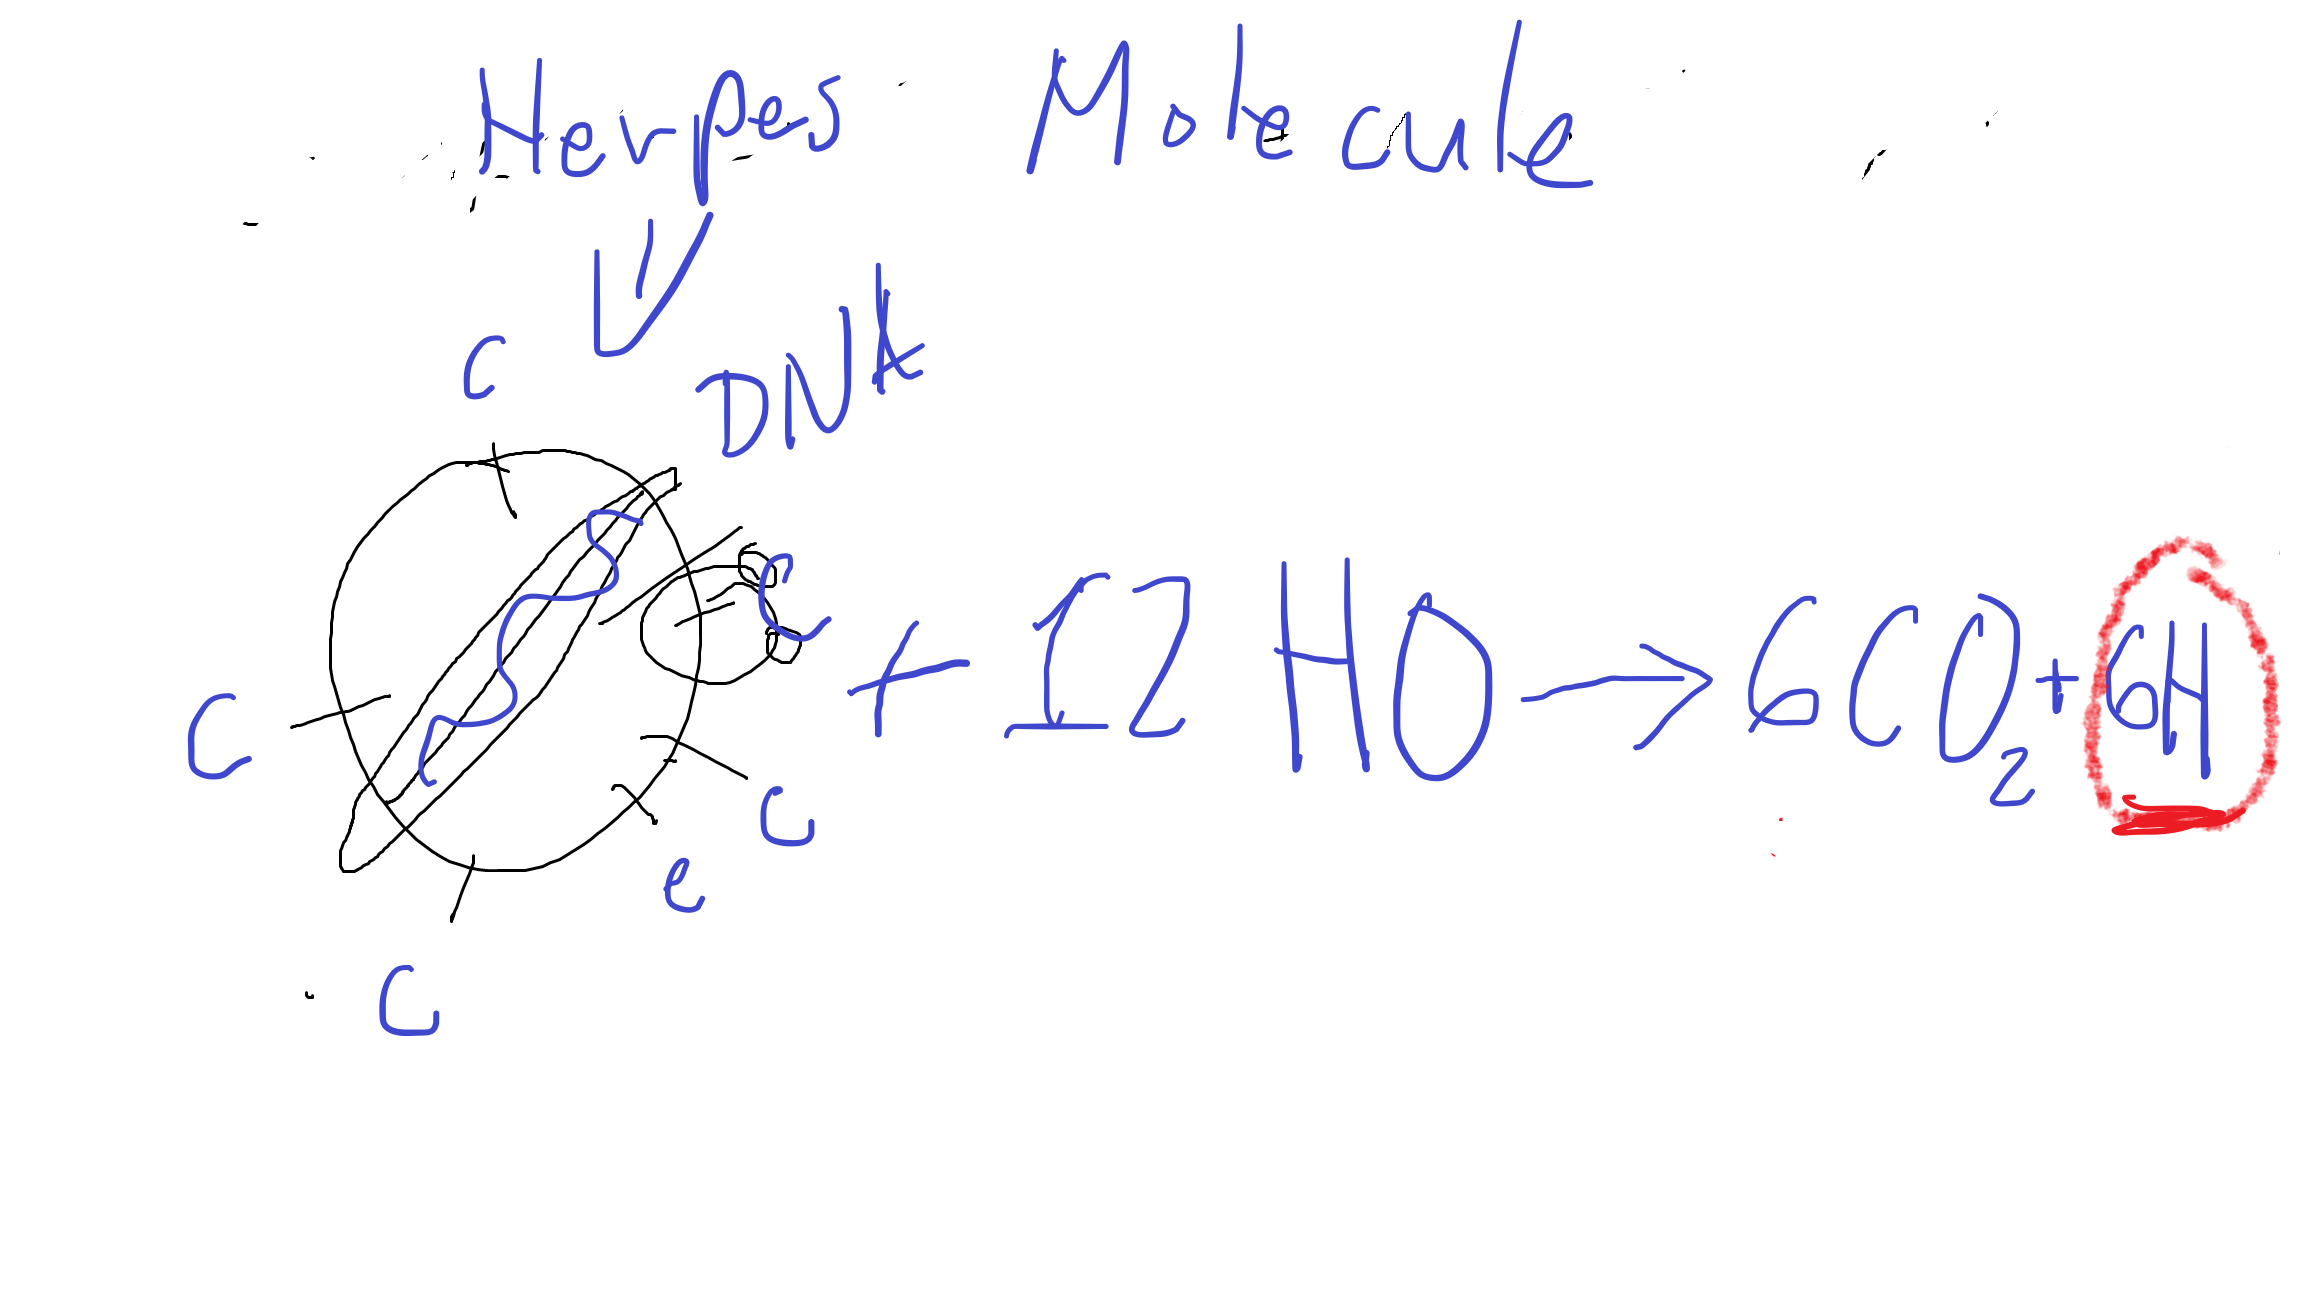 Herpes Molecule
DNA
C
C
C + 12 HO → 6CO₂ + 6H
C
e
C